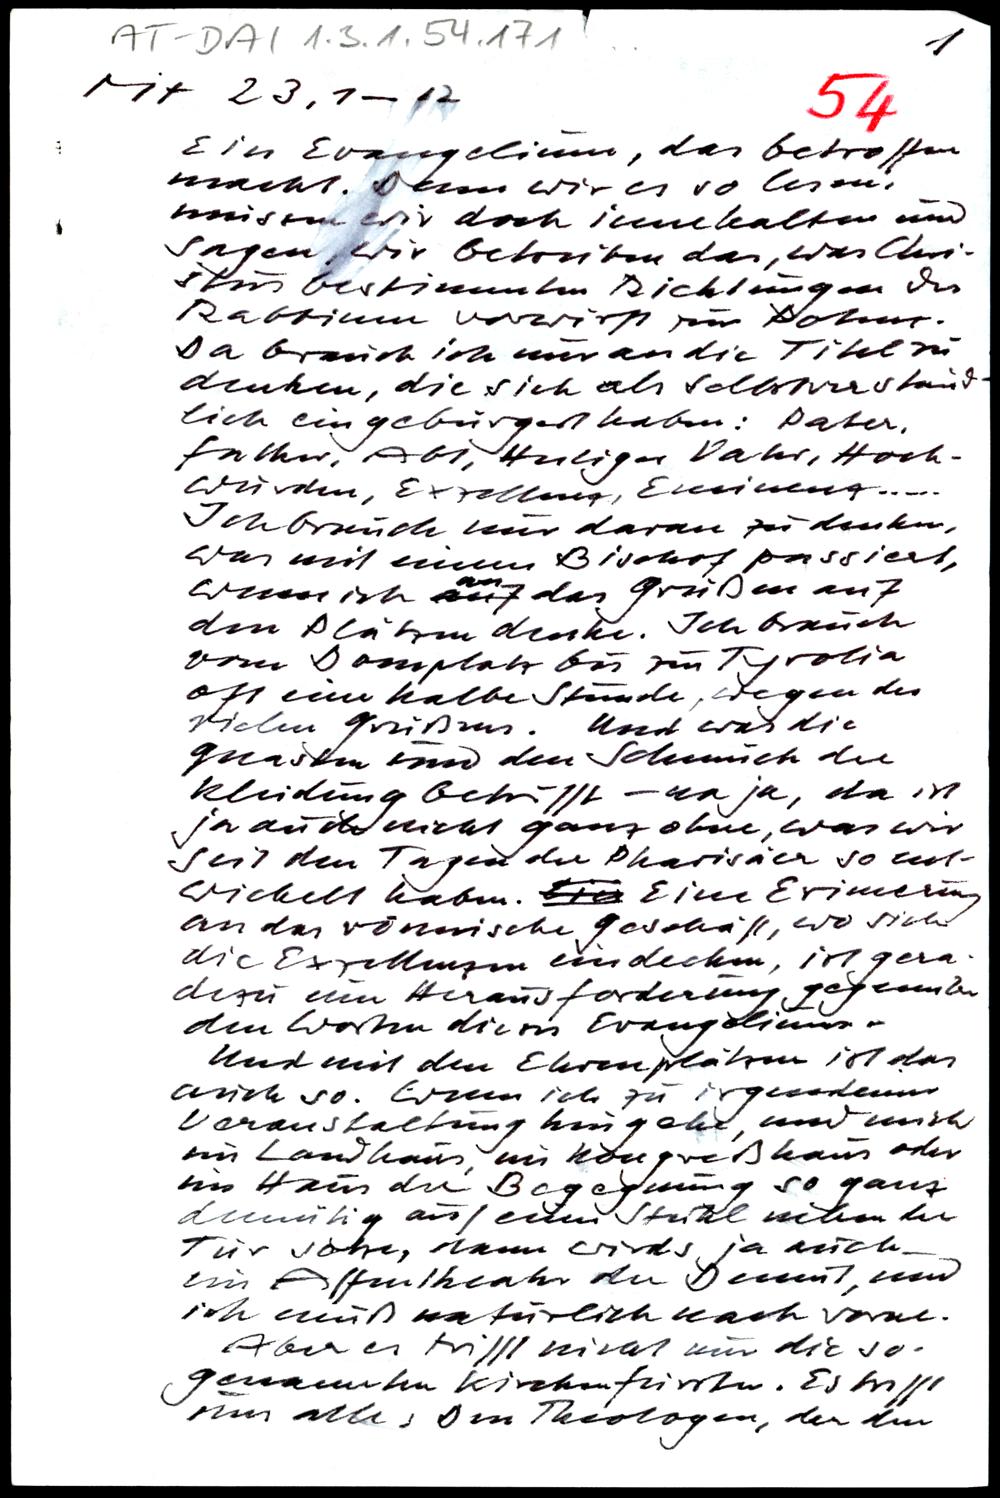 AT-DAI 1.3.1.54.171
1
Mt 23,1-12
54
Ein Evangelium, das betroffen
macht. Denn wir es so lesen,
müssen wir doch innehalten und
sagen, wir betreiben das, was Chri-
stus bestimmten Richtungen der
Rabbinen vorwirft
Da brauch ich nur an die Titel zu
denken, die sich als selbstverständ-
lich eingebürgert haben: Pater,
father, Abt, Heiliger Vater, Hoch-
würden, Exzellenz, Eminenz.....
Ich brauch nur daran zu denken,
was mit einem Bischof passiert,
wenn ich an das Grüßen auf
den Plätzen denke. Ich brauch
vom Domplatz bis zur Tyrolia
oft eine halbe Stunde, wegen des
vielen Grüßens. Und was die
Quasten und den Schmuck der
Kleidung betrifft – na ja, da ist
ja auch nicht ganz ohne, was wir
seit den Tagen der Pharisäer so ent-
wickelt haben. Eine Erinnerung
an das römische Geschäft, wo sich
die Exzellenzen eindecken, ist gera-
dezu eine Herausforderung gegenüber
den Worten dieses Evangeliums.
Und mit den Ehrenplätzen ist das
auch so. Wenn ich zu irgendeiner
Veranstaltung hingehe, und mich
im Landhaus, im Kongreßhaus oder
im Haus der Begegnung so ganz
demütig auf einen Stuhl neben der
Tür setze, dann wirds ja auch
ein Affentheater der Demut, und
ich muß natürlich nach vorne.
Aber es trifft nicht nur die so-
genannten Kirchenfürsten. Es trifft
uns alle: Den Theologen, der den